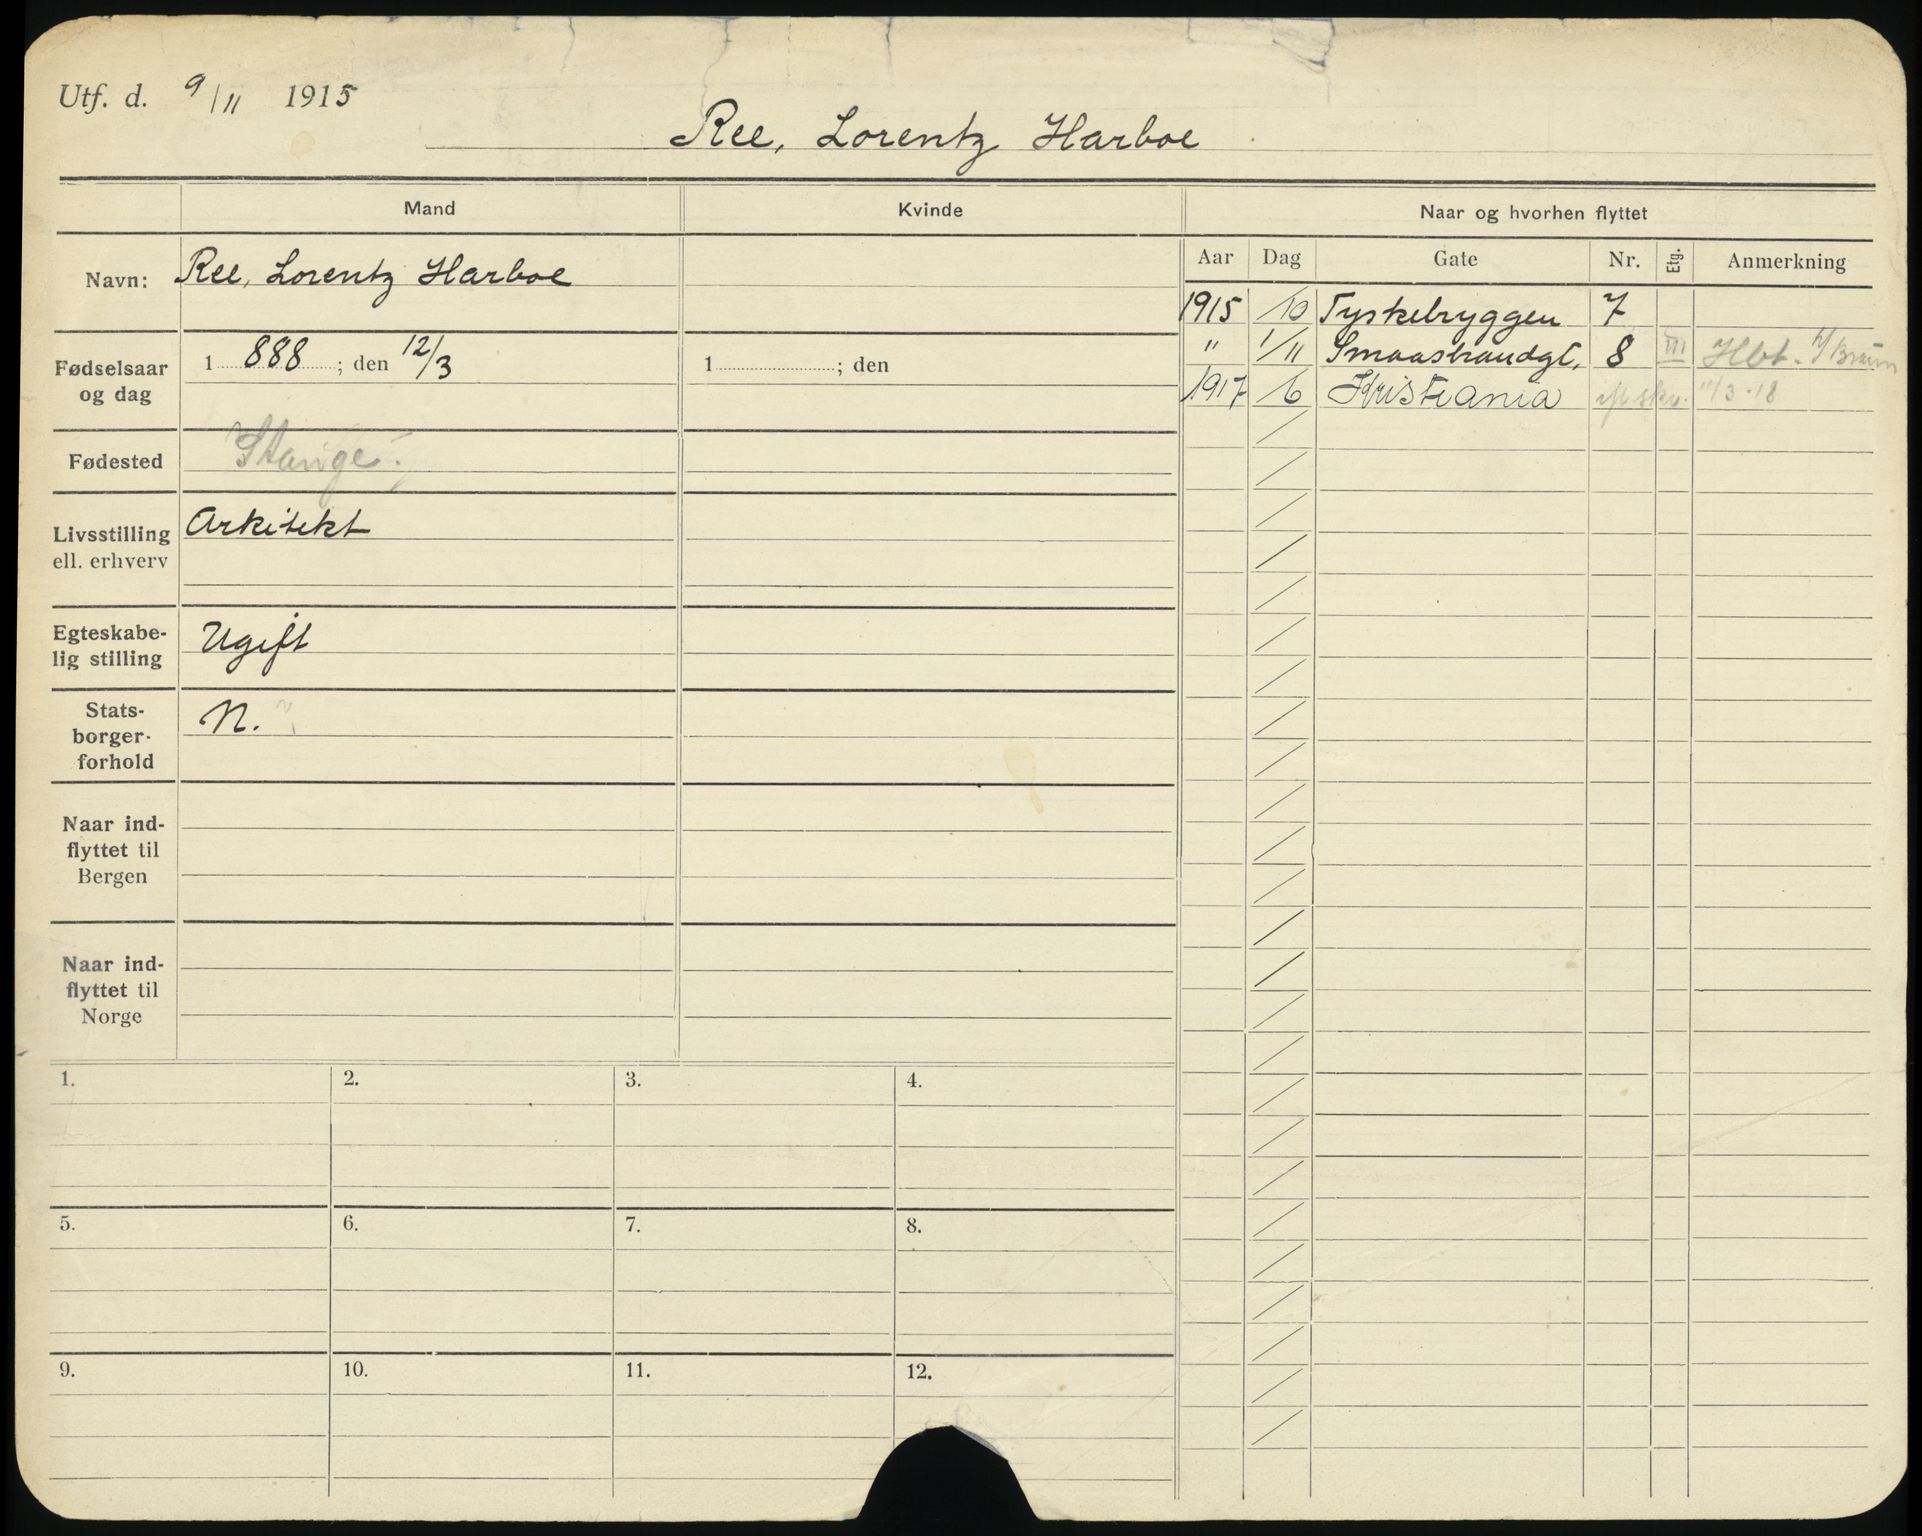 Utf. d. 9/11 1915
Ree, Lorentz Harboe
Mand Kvinde Naar og hvorhen flyttet
Aar Dag Gate Nr. Etg. Anmerkning
Navn: Ree, Lorentz Harboe
1915 /10 Tyskebryggen 7
" 1/11 Smaastrandgt. 8 III Hbt. H/ Bruun
1917 /6 Kristiania ifl skr. 11/3-18
Fødselsaar og dag 1888; den 12/3 1 ; den
Fødested Stange.
Livsstilling ell. erhverv Arkitekt
Egteskabe-
lig stilling Ugift
Stats-
borger-
forhold N.
Naar ind-
flyttet til
Bergen
Naar ind-
flyttet til
Norge
1. 2. 3. 4.
5. 6. 7. 8.
9. 10. 11. 12.